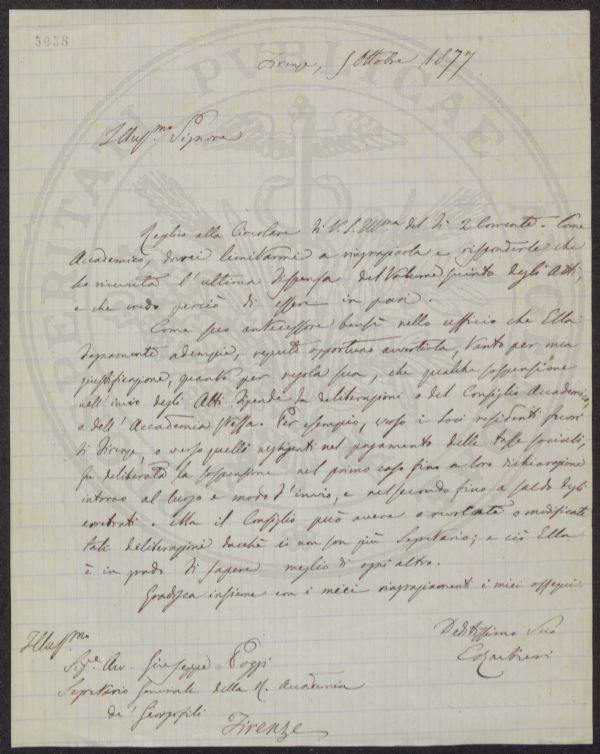 5058
Firenze, 5 Ottobre 1877
Illuss.mo Signore
alla Circolare di V. S. Ill.ma del dì 2 Corrente. Come
Accademico, dovrei limitarmi a ringraziarla e risponderle che
ho ricevuto l'ultima dispensa del Volume quinto degli Atti,
e che credo perciò di essere in pari.
Come suo antecessore bensì nello ufficio che Ella
degnamente adempie, reputo opportuno avvertirla, tanto per mia
giustificazione, quanto per regola sua, che qualche sospensione
nell'invio degli Atti dipende da deliberazioni o del Consiglio Accademico,
o dell'Accademia stessa. Per esempio, verso i Soci residenti fuori
di Firenze, o verso quelli negligenti nel pagamento delle tasse sociali,
fu deliberata la sospensione nel primo caso fino a loro dichiarazione
intorno al luogo e modo d'invio, e nel secondo fino a saldo degli
arretrati. Ma il Consiglio può avere o revocate o modificate
tali deliberazioni dacchè io non son più Segretario; e ciò Ella
è in grado di sapere meglio di ogni altro.
Gradisca insieme con i miei ringraziamenti i miei ossequi.
Devotissimo Suo
Illuss.mo
Sig.e Avv. Giuseppe Poggi
Segretario Generale della R. Accademia
de' Georgofili
Firenze